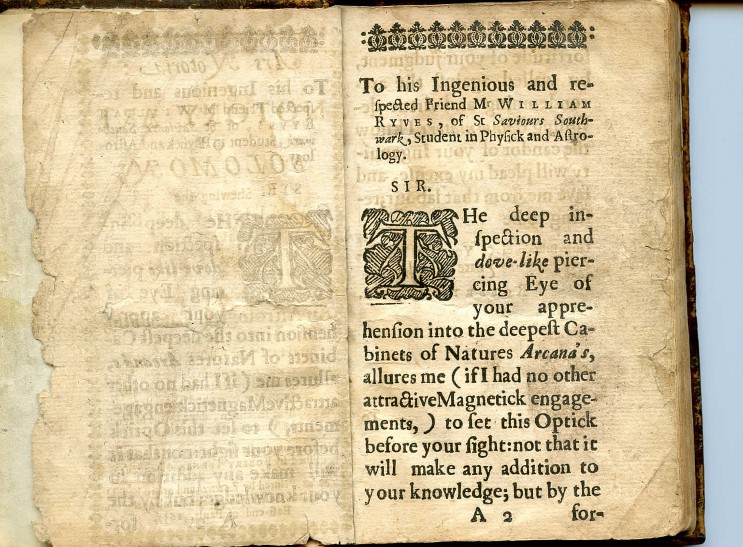 To his Ingenious and re-
ſpected Friend Mr WILLIAM
RYVES, of St Saviours South-
wark, Student in Phyſick and Aſtro-
logy.
SIR.
THe deep in-
ſpection and
dove-like pier-
cing Eye of
your appre-
henſion into the deepeſt Ca-
binets of Natures Arcana's,
allures me ( if I had no other
attractive Magnetick engage-
ments, ) to ſet this Optick
before your ſight: not that it
will make any addition to
your knowledge; but by the
A 2 for-